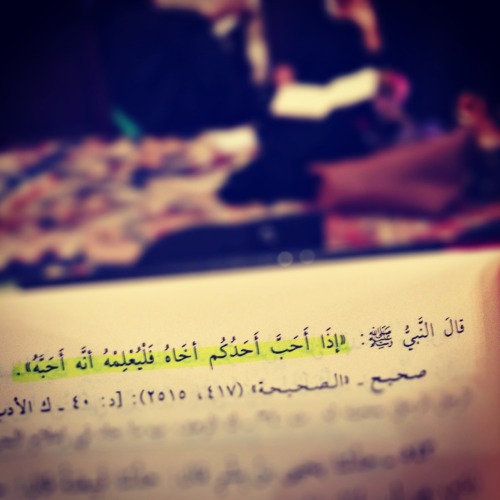 قالَ النَّبيُّ ﷺ: «إِذَا أَحَبَّ أَحَدُكُم أخَاهُ فَلْيُعْلِمْهُ أنَّه أَحَبَّهُ».
صحيح ـ «الصحيحة» (٤١٧، ٢٥١٥): [د: ٤٠ ـ ك الأدب